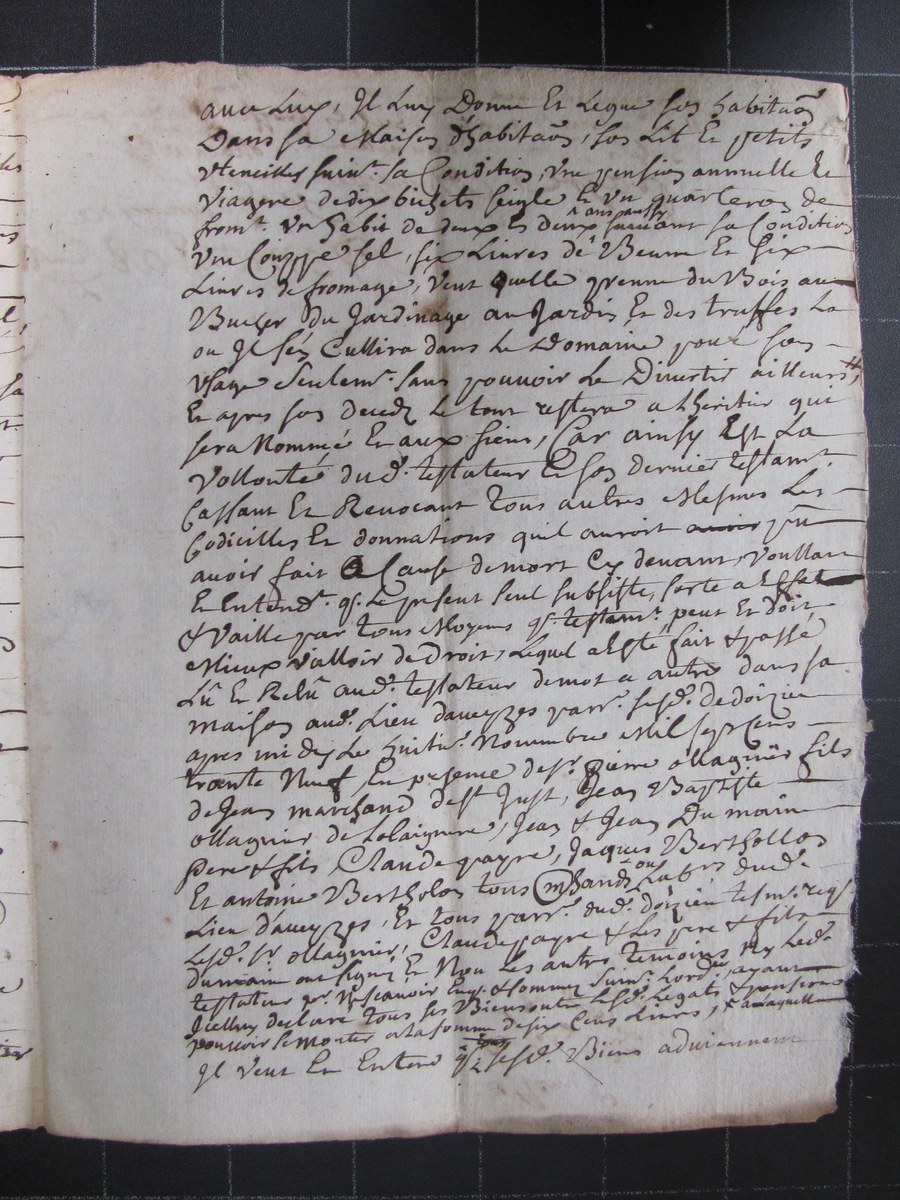 avec luy, Il luy Donne Et Legue son habitaõn
Dans sa Maison d'habitaõn, son Lit Et petits
Utencilles suivt. sa Condition, une pension annuelle Et
viagere de dix bichets seigle Et un quarteron de
fromt. Un habit de deux En deux ans suivant sa Condition
Une Couppe sel, six Livres de Beurre Et six
Livres de fromage, veut quelle prenne du Bois au
Bucher du Jardinage au Jardin Et des truffes La
ou Il sen Cullira dans Le Domaine pour son
Usage seulemt. sans pouvoir Le Divertir ailleurs,
Et apres son deced Le tout restera a Lheritier qui
sera Nommé Et aux siens, Car ainsy Est La
vollonté dud. testateur Et son dernier testamt.
Cassant Et Revocant tous autres Mesmes Les
Codicilles Et donnations quil auroit avoir pû
avoir fait a Cause de mort Cy devant, voullant
Et Entendt. q. Le present seul subsiste, sorte a Effet
& vaille par tous Moyens q. testamt. peut Et doit
Mieux valloir de Droit, Lequel a Esté fait & passé
Lû Et Relû aud. testateur de mot a autre dans sa
maison aud. Lieu daveyzes parr. de doizieu
apres midy Le huitie. Novembre Mil sept Cens
trente Neuf, En presence de sr. Pierre ollagnier fils
de Jean marchand de st Just, Jean Baptiste
ollagnier de Jean & Jean Dumain
Pere & fils, Claude payre, Jaques Berthollon
Et antoine Berthollon tous mhands ou Labrs dud.
Lieu d'aveyzes, Et tous parr. dud. doizieu tesm. req.
Lesd. sr ollagnier, Claude payre & Les pere & fils
dumain ont signé Et Non Les autres temoins Ny Led.
testateur pr. Ne scavoir Enq. & sommez suivt. Lord.
Icelluy declare tous ses Biens outre Lesd. Legats & pensions
pouvoir se monter a La somme de six Cens Livres, a Laquelle
Il veut Et Entend q. Lesd. Biens adviennent